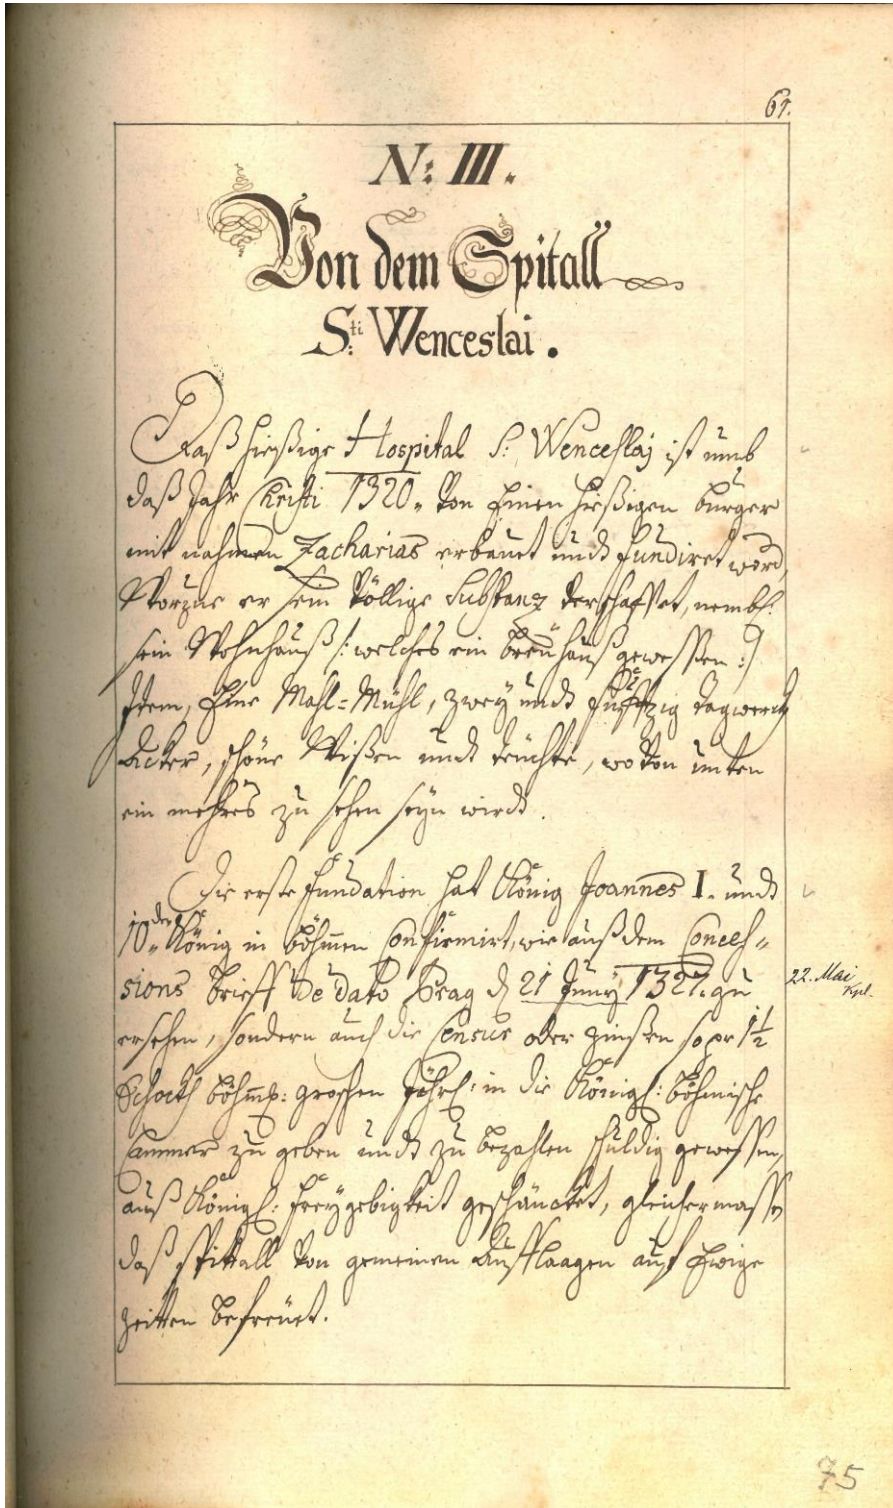 61.
N: III.
Von dem Spitall
S:ti Wenceslai.
Daß hießige Hospital S: Wenceslaj ist umb
daß Jahr Christi 1320. Von Einen hießigen burger
mit nahmen Zacharias erbauet undt fundiret word,
Worzue er sein Völlige Substanz verschaffet, nembl:
sein Wohnhauß /: welches ein Breuhauß gewessen :/
Item, Eine Mahl=Mühl, zwey undt fuffzig tagwerckh
Äcker, schöne Wißen undt teüchte, wo Von unten
ein mehres zu sehen seyn wirdt.
Die erste Fundation hat König Joannes I. undt
10der König in Böhmen Confirmirt, wie auß dem Conces„
sions Brieff De dato Prag d 21 Juny 1327. zu
22. Mai
ersehen, sondern auch die Census oder zinßen so pr 1½
Schockh böhmß: groschen Jährl: in die Königl: böhmische
Cammer zu geben undt zu bezahlen schuldig gewessen,
auß Königl: freygebigkeit geschäncket, gleichermassen
daß spittall Von gemeinen Aufflaagen auf Ewige
zeitten befreüet.
75